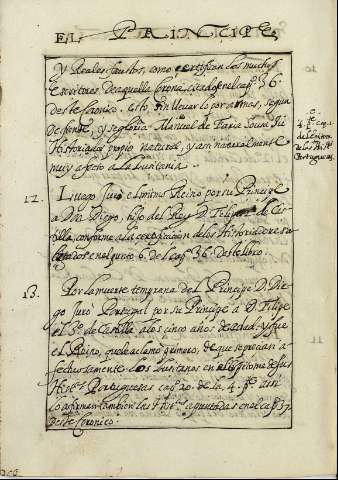 EL PRINCIPE
y Reales faustos, como certifican los muchos
Escritores de aquella Corona, citados en el capº. 36.
deste Cronico. Esto, sin llevarlo por armas, segun
defiende, y se gloria Manuel de Faria Sousa, su
Historiador propio, natural, y
muy afecto a la Lusitania.
4. pte. cap. 1.
de las Histª.
Portuguesas.
12. Luego Juro este mismo Reino por su Principe
a Dn. Diego, hijo del Rey D. Felipe de Cas
tilla, conforme a la certificacion de los Historiadores ci
tados en el punto 6. del capº. 36. deste libro.
13. Por la muerte temprana del Principe D. Die
go Juro Portugal por su Principe a D. Felipe
el 3º. de Castilla, a los cinco años de edad: y fue
el Reino, que le aclamo primero, de que se precian a
fectuosamente los Lusitanos en el de sus
Histªs. Portuguesas capº. 20. de la 4. pte. assi
lo afirman tambien las Histªs. apuntadas en el capº. 37.
deste Cronico.